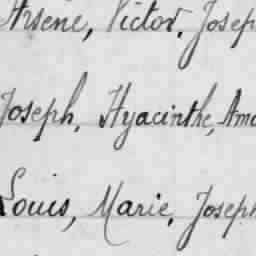 Arsene, Victor, Josep
Joseph, Hyacinthe, Ama
Louis, Marie, Joseph